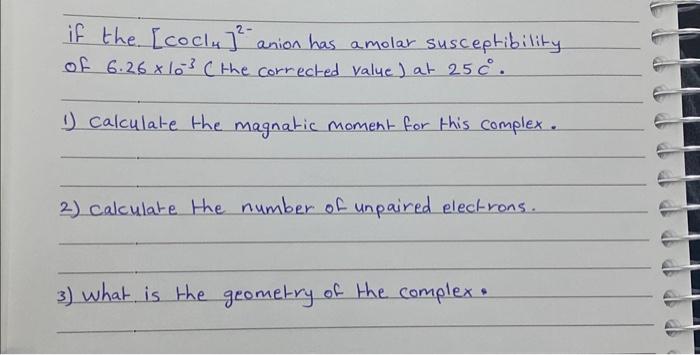 if the [cocl₄]²⁻ anion has a molar susceptibility
of 6.26 x 10⁻³ (the corrected value) at 25 c°.
1) calculate the magnatic moment for this complex.
2) calculate the number of unpaired electrons.
3) what is the geometry of the complex.